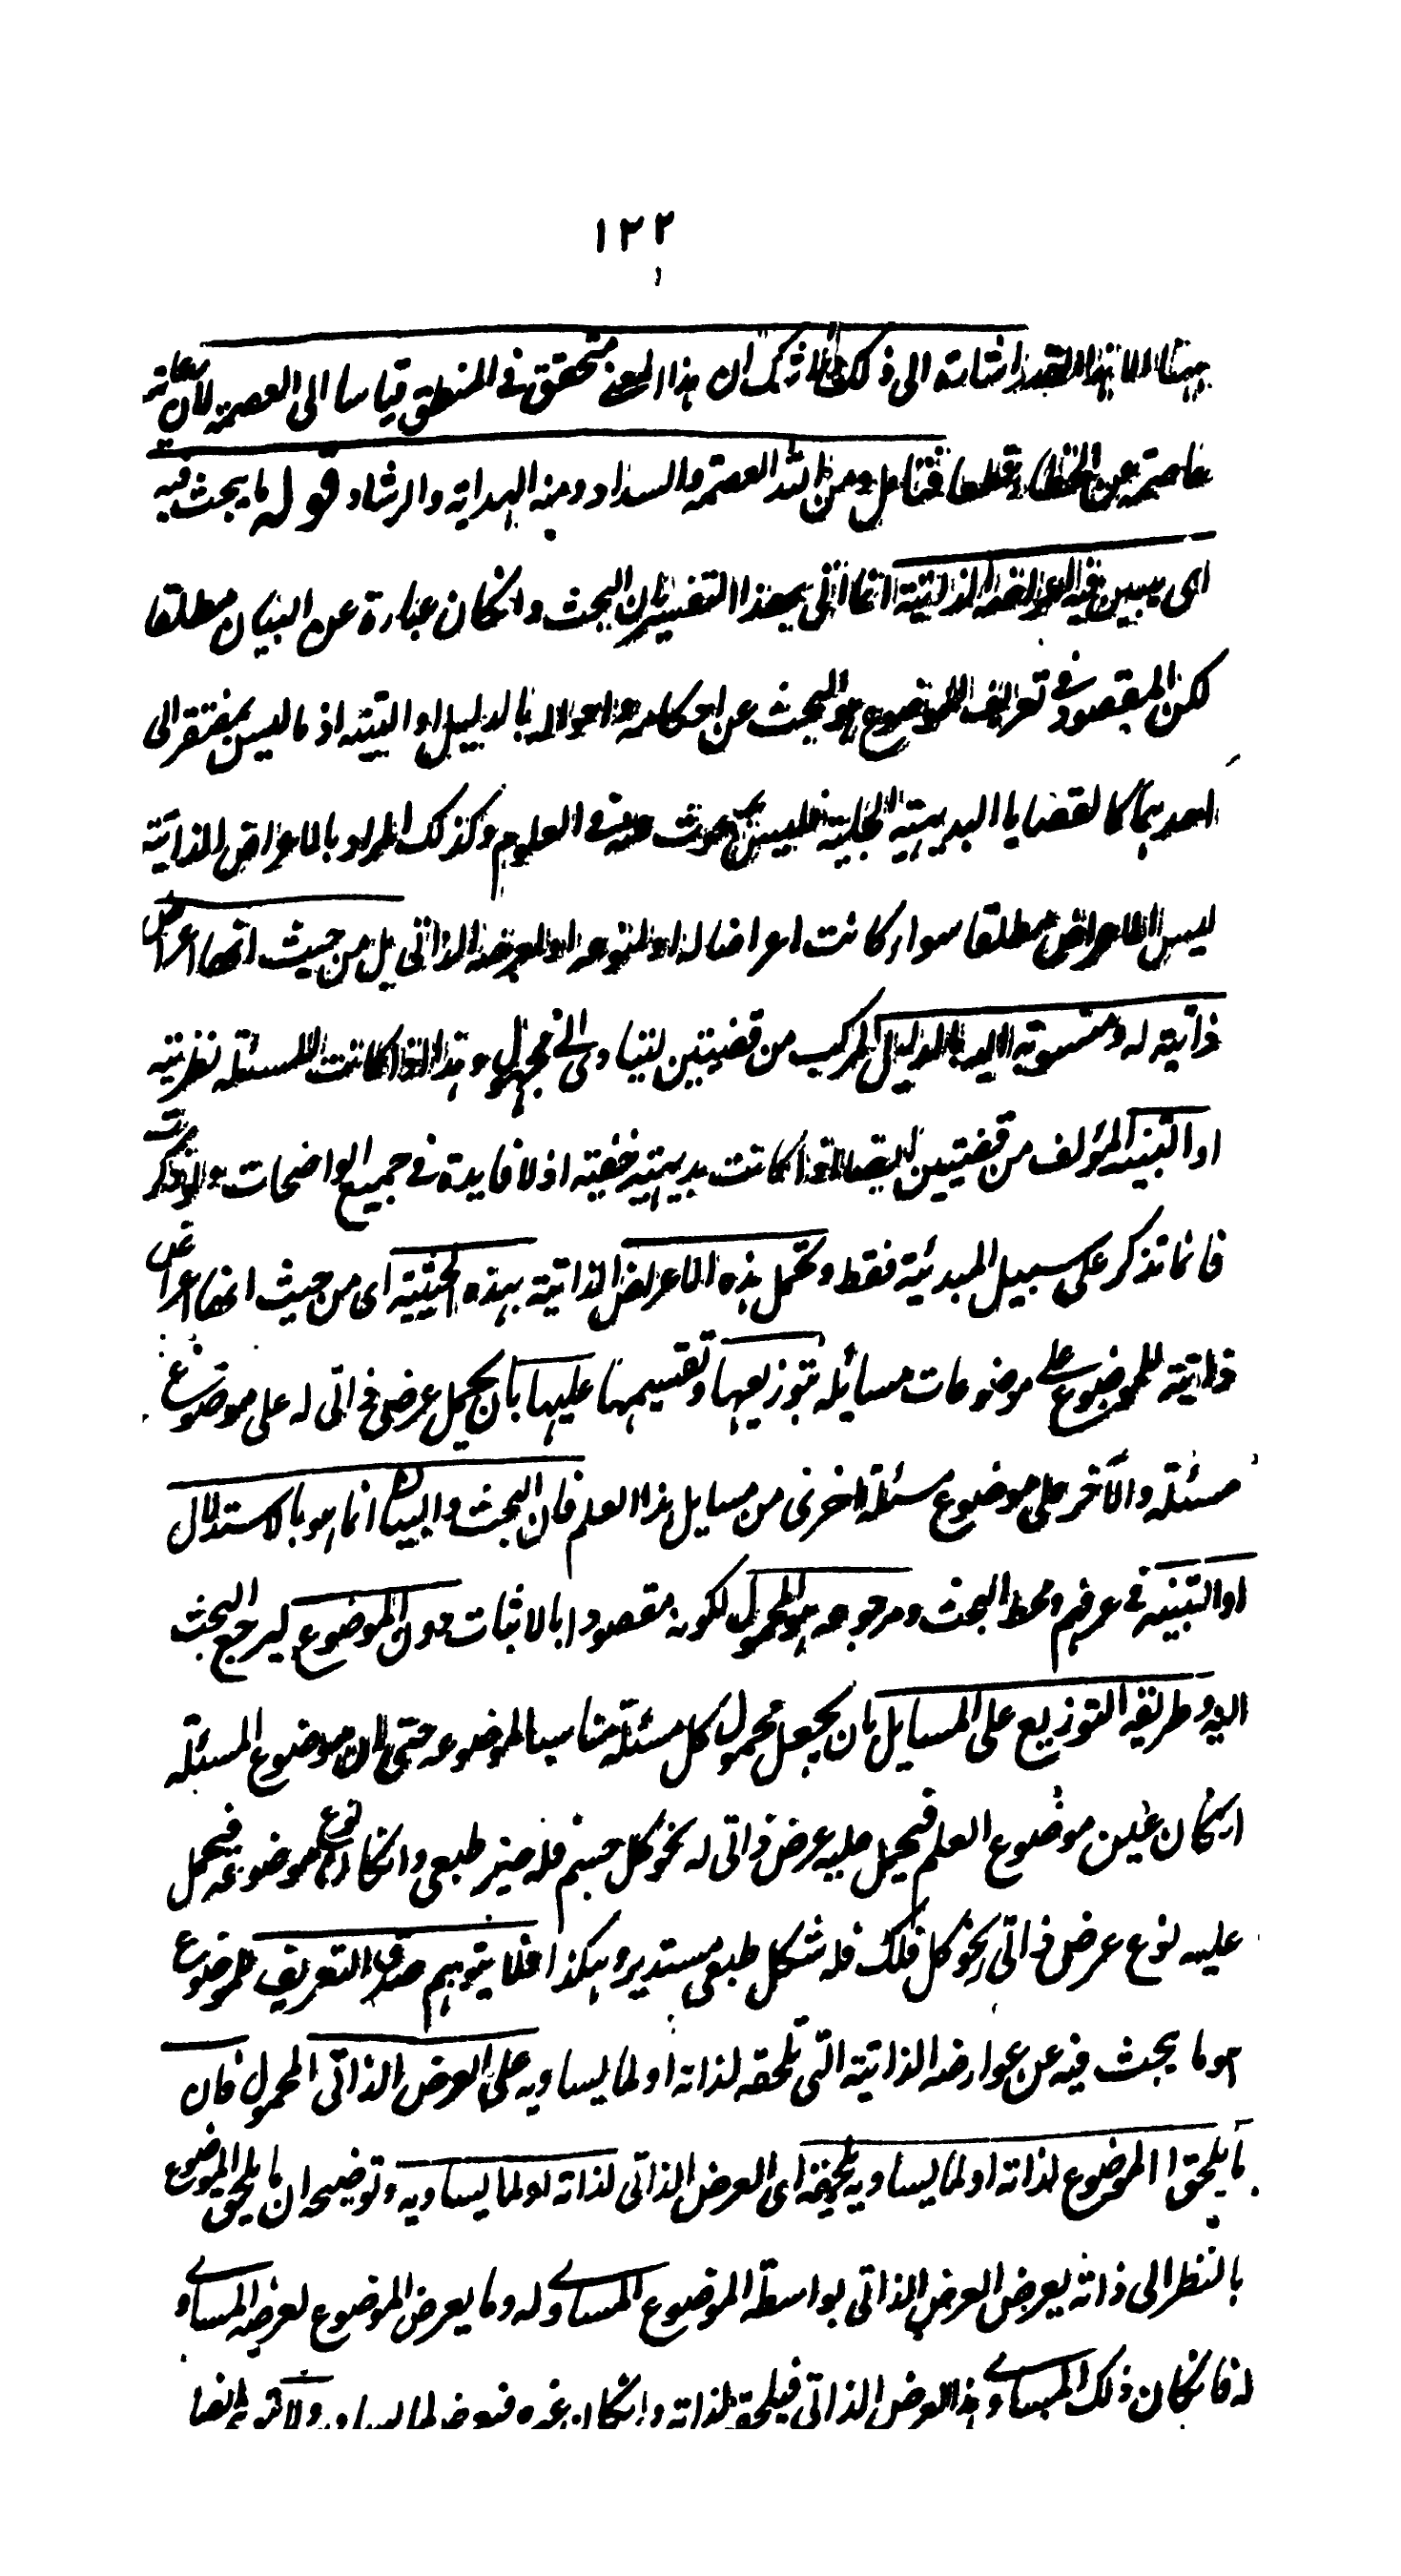 ١٣٢
ههنا الا بهذا القدر اشارة الى ذلك ولا شك ان هذا المعنى متحقق في المنطق قياسا الى العصمة لان
عاصمة عن الخطاء قطعا فتامل ومن الله العصمة والسداد ومنه الهداية والرشاد قوله ما يبحث فيه
اى يبين فيه اعراضه الذاتية انما اتى بهذا التفسير لان البحث وانكان عبارة عن البيان مطلقا
لكن المقصود في تعريف الموضوع هو البحث عن احكامه واحواله بالدليل او التنبيه اذ ما ليس بمفتقر الى
احدهما كالقضايا البديهية الجلية فليس بمبحوث عنه في العلوم وكذلك المراد بالاعراض الذاتية
ليس الاعراض مطلقا سواء كانت اعراضا له او لنوعه او لعرضه الذاتى بل من حيث انها اعراض
ذاتية له ومنسوبة اليه بالدليل المركب من قضيتين لتيادى الى مجهول وهذا اذا كانت المسئلة نظرية
او التنبيه المؤلف من قضيتين ايضا اذا كانت بديهية خفية اذ لا فايدة في جميع الواضحات ولو ذكرت
فانما تذكر على سبيل المبدئية فقط وتحمل هذه الاعراض الذاتية بهذه الحيثية اى من حيث انها اعراض
ذاتية للموضوع على موضوعات مسائله بتوزيعها وتقسيمها عليها بان يحمل عرض ذاتى له على موضوع
مسئلة والآخر على موضوع مسئلة اخرى من مسايل هذا العلم فان البحث والبيان انما هو بالاستدلال
او التنبيه في عرفهم ومحط البحث ومرجوعه هو المحمول لكونه مقصودا بالاثبات دون الموضوع ليرجع البحث
اليه وطريقة التوزيع على المسايل بان يجعل محمول كل مسئلة مناسبا لموضوعه حتى ان موضوع المسئلة
انكان عين موضوع العلم فيحمل عليه عرض ذاتى له نحو كل جسم فله حيز طبعى وانكان نوع موضوعه فيحمل
عليه نوع عرض ذاتى نحو كل فلك فله شكل طبعى مستدير وهكذا فلا يتوهم صدق التعريف للموضوع
هو ما يبحث فيه عن عوارضه الذاتية التى تلحقه لذاته او لما يساويه على العرض الذاتى المحمول فان
ما يلحق الموضوع لذاته او لما يساويه يلحقه اى العرض الذاتى لذاته او لما يساويه وتوضيحه ان ما يلحق الموضوع
بالنظر الى ذاته يعرض العرض الذاتى بواسطة الموضوع المساوى له وما يعرض الموضوع لعرضه المساوى
له فانكان ذلك المساوى هذا العرض الذاتى فيلحقه لذاته وانكان غيره فيعرض لما يساويه ولا شبهة ايضا